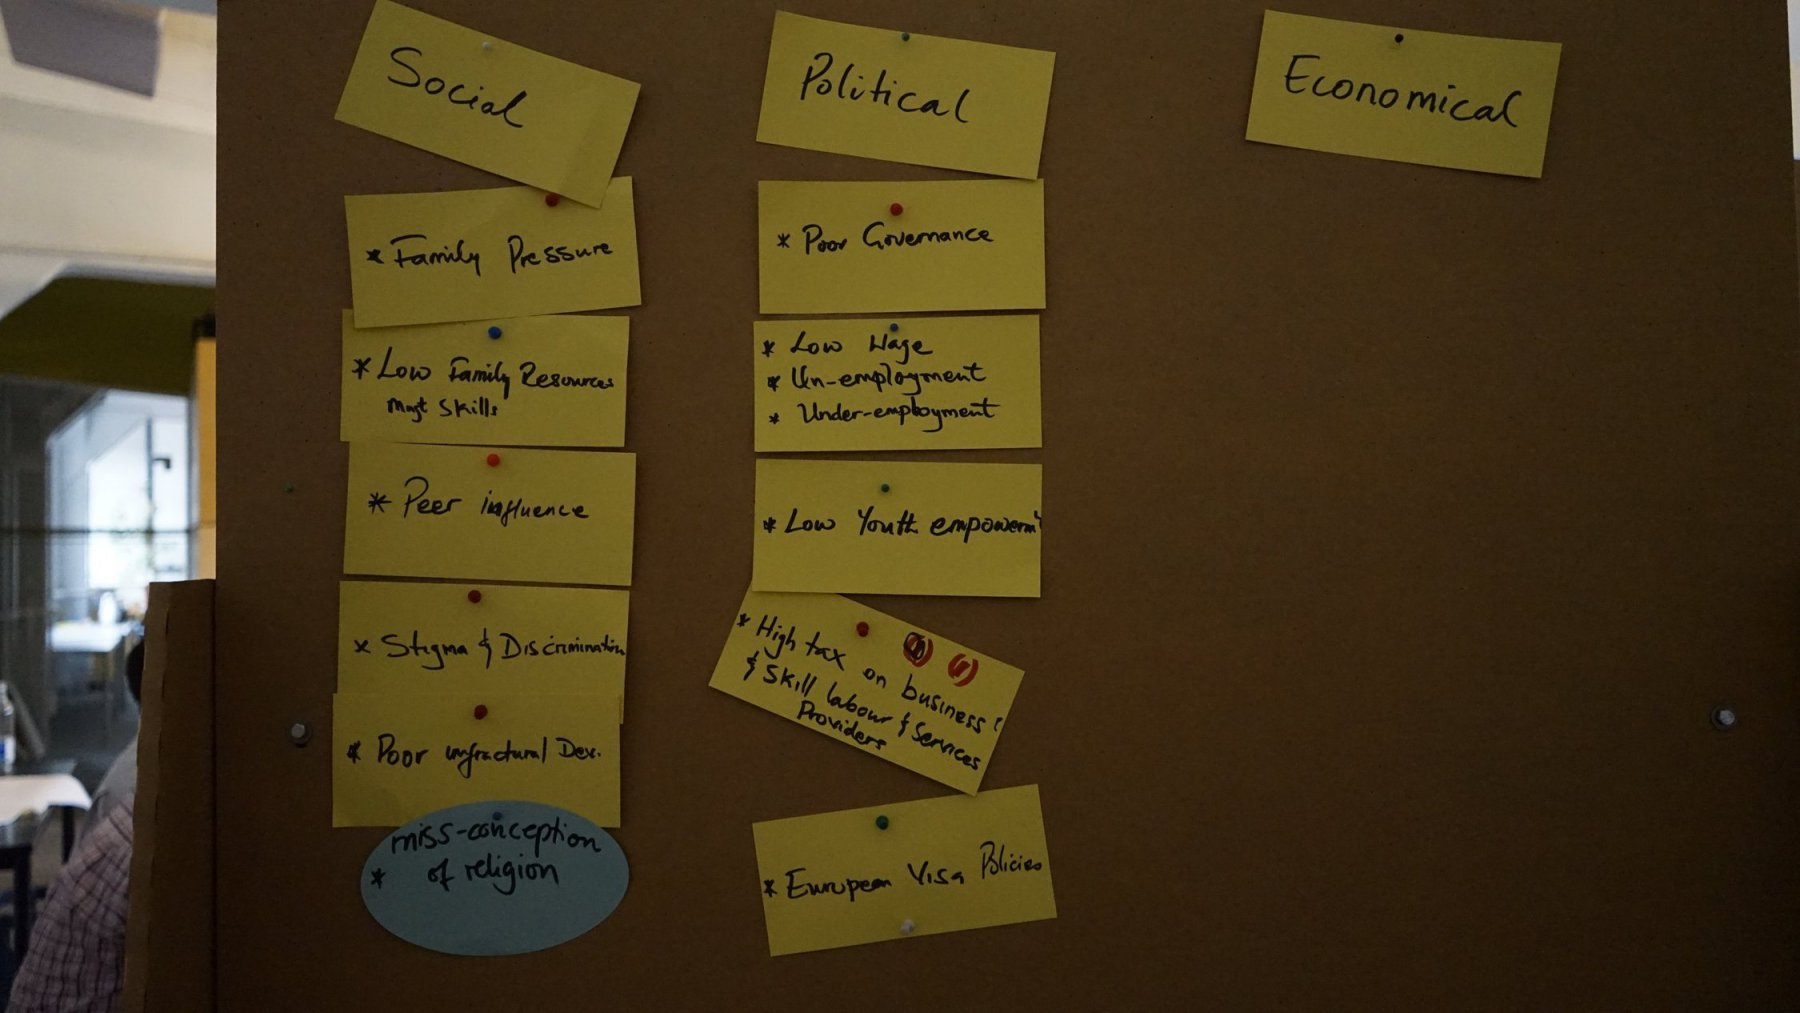 Social
* Family Pressure
* Low Family Resources
Mngt Skills
* Peer influence
* Stigma & Discrimination
* Poor infractural Dev.
miss-conception
* of religion
Political
* Poor Governance
* Low Wage
* Un-employment
* Under-employment
* Low Youth empowerm'
* High tax on business
& Skill labour & Services
Providers
* European Visa Policies
Economical